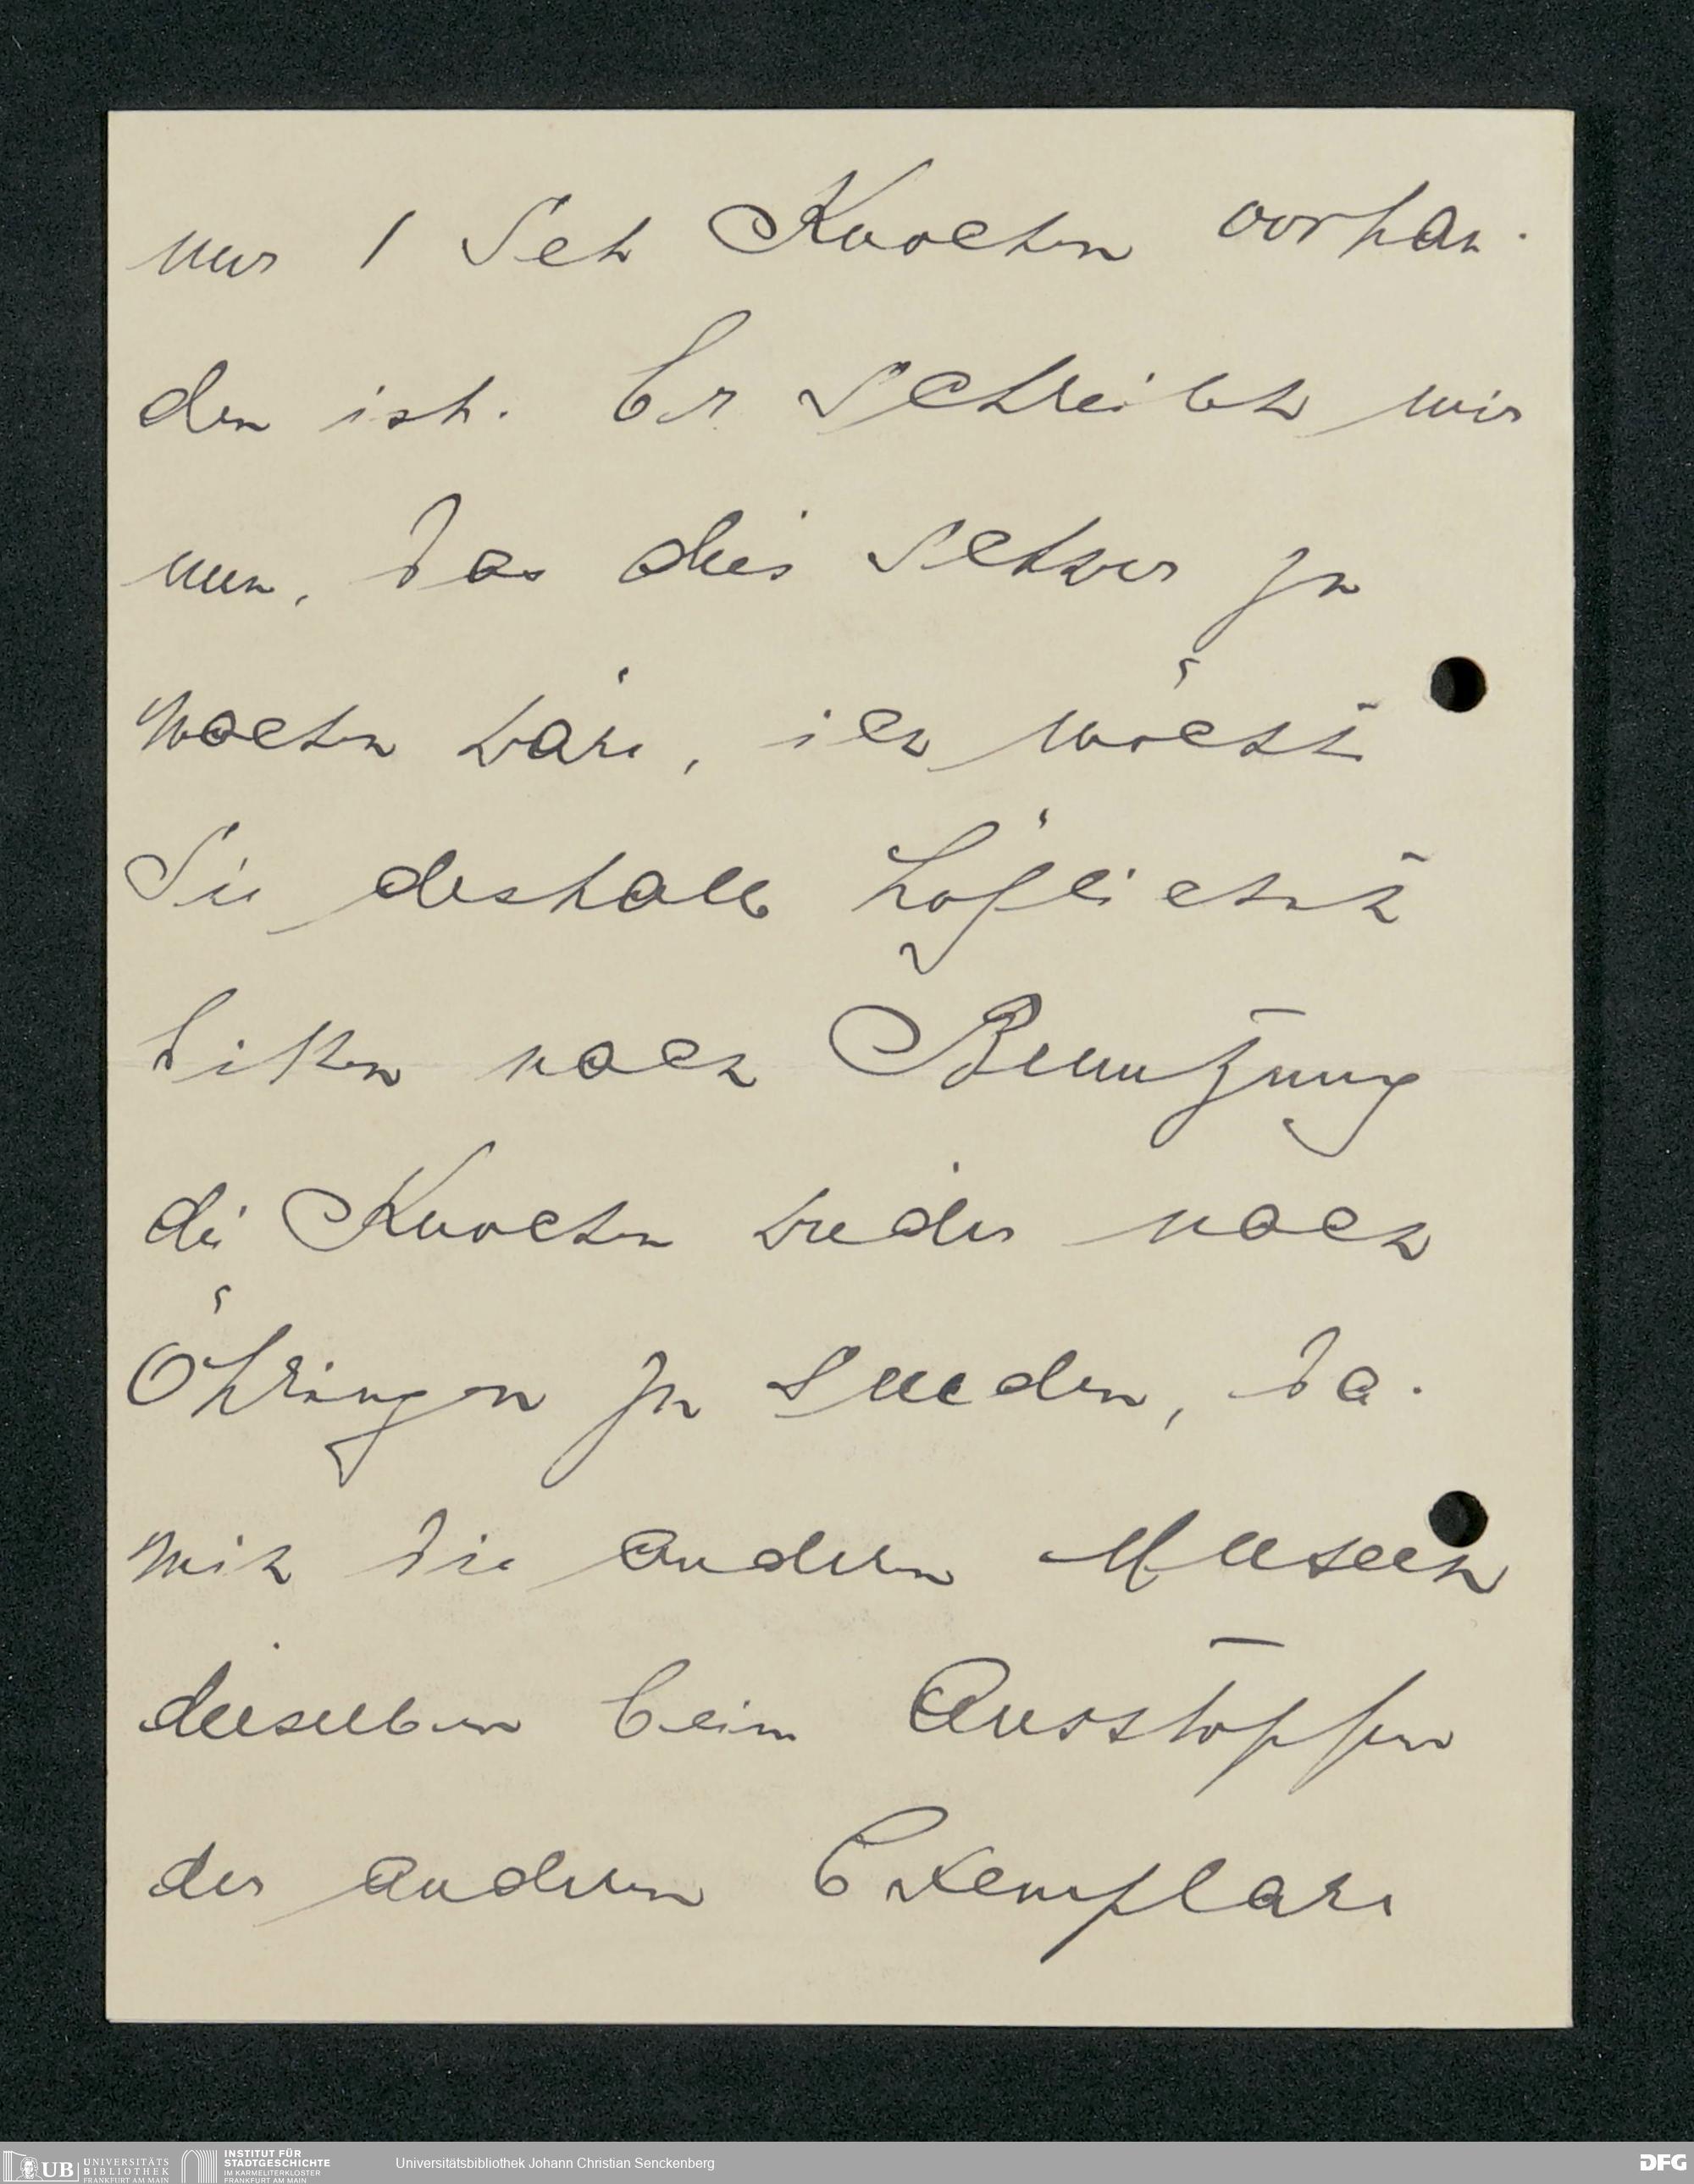 nur 1 Set Knochen vorhan-
den ist. Er schreibt mir
nun, das dies schwer zu
machen wäre, ich möchte
Sie deshalb höflichst
bitten nach Benutzung
die Knochen wieder nach
Öhringen zu senden, da-
mit die andern Museen
dieselben beim Ausstopfen
der andern Exemplare
UNIVERSITÄTS
BIBLIOTHEK
FRANKFURT AM MAIN
UB
INSTITUT FÜR
STADTGESCHICHTE
IM KARMELITERKLOSTER
FRANKFURT AM MAIN
Universitätsbibliothek Johann Christian Senckenberg
DFG